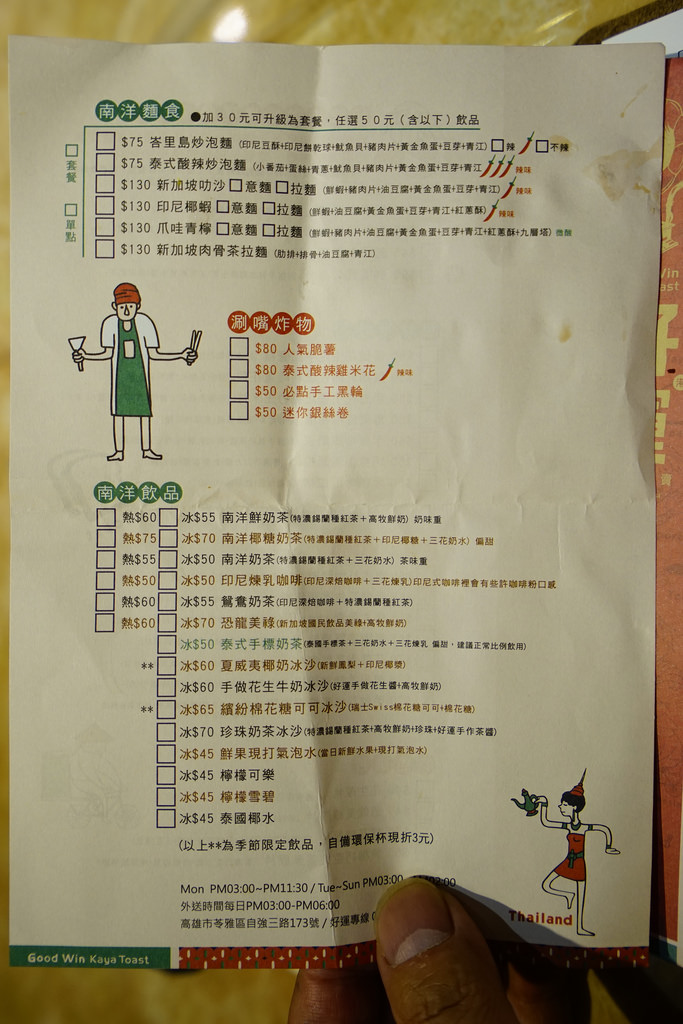 南洋麵食 ●加30元可升級為套餐，任選50元(含以下)飲品
套餐
單點
$75 峇里島炒泡麵 (印尼豆酥+印尼餅乾球+魷魚貝+豬肉片+黃金魚蛋+豆芽+青江) 辣 不辣
$75 泰式酸辣炒泡麵 (小番茄+蛋絲+青蔥+魷魚貝+豬肉片+黃金魚蛋+豆芽+青江) 辣味
$130 新加坡叻沙 意麵 拉麵 (鮮蝦+豬肉片+油豆腐+黃金魚蛋+豆芽+青江) 辣味
$130 印尼椰蝦 意麵 拉麵 (鮮蝦+油豆腐+黃金魚蛋+豆芽+青江+紅蔥酥) 辣味
$130 爪哇青檸 意麵 拉麵 (鮮蝦+豬肉片+油豆腐+黃金魚蛋+豆芽+青江+紅蔥酥+九層塔) 微酸
$130 新加坡肉骨茶拉麵 (肋排+排骨+油豆腐+青江)
涮嘴炸物
$80 人氣脆薯
$80 泰式酸辣雞米花 辣味
$50 必點手工黑輪
$50 迷你銀絲卷
南洋飲品
熱$60 冰$55 南洋鮮奶茶(特濃錫蘭種紅茶＋高牧鮮奶) 奶味重
熱$75 冰$70 南洋椰糖奶茶(特濃錫蘭種紅茶＋印尼椰糖＋三花奶水) 偏甜
熱$55 冰$50 南洋奶茶(特濃錫蘭種紅茶＋三花奶水) 茶味重
熱$50 冰$50 印尼煉乳咖啡(印尼深焙咖啡＋三花煉乳)印尼式咖啡裡會有些許咖啡粉口感
熱$60 冰$55 鴛鴦奶茶(印尼深焙咖啡＋特濃錫蘭種紅茶)
熱$60 冰$70 恐龍美祿(新加坡國民飲品美祿+高牧鮮奶)
冰$50 泰式手標奶茶(泰國手標茶＋三花奶水＋三花煉乳 偏甜，建議正常比例飲用)
** 冰$60 夏威夷椰奶冰沙(新鮮鳳梨＋印尼椰漿)
冰$60 手做花生牛奶冰沙(好運手做花生醬+高牧鮮奶)
** 冰$65 繽紛棉花糖可可冰沙(瑞士Swiss棉花糖可可+棉花糖)
冰$70 珍珠奶茶冰沙(特濃錫蘭種紅茶+高牧鮮奶+珍珠+好運手作茶醬)
冰$45 鮮果現打氣泡水(當日新鮮水果+現打氣泡水)
冰$45 檸檬可樂
冰$45 檸檬雪碧
冰$45 泰國椰水
(以上**為季節限定飲品，自備環保杯現折3元)
Mon PM03:00~PM11:30 / Tue~Sun PM03:00
外送時間每日PM03:00-PM06:00
高雄市苓雅區自強三路173號 / 好運專線
Thailand
Good Win Kaya Toast